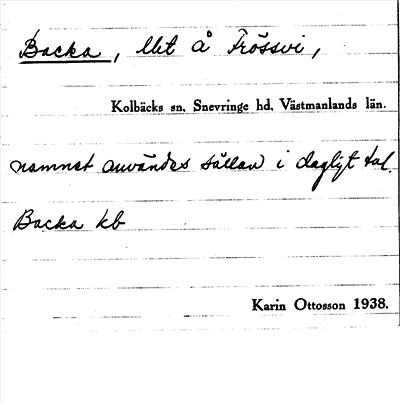 Backa, lht å Frössvi,
Kolbäcks sn, Snevringe hd, Västmanlands län.
namnet användes sällan i dagligt tal.
Backa kb
Karin Ottosson 1938.